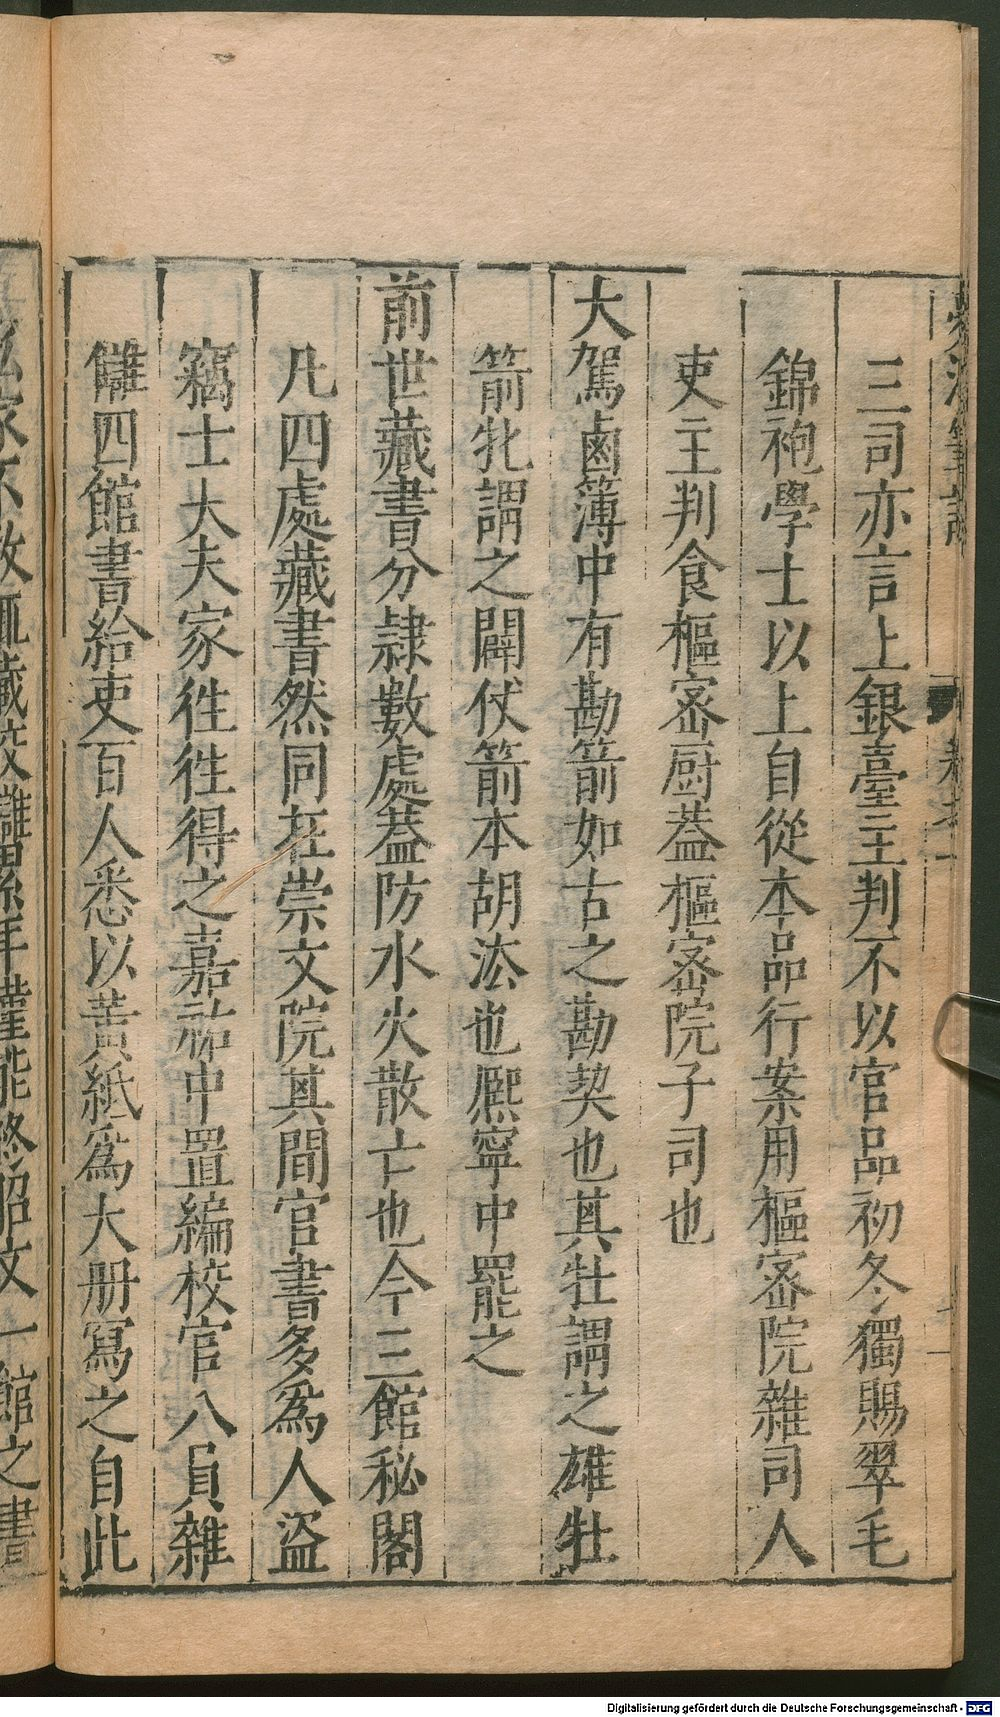 三司亦言上銀臺主判不以官品初冬獨賜翠毛
錦袍學士以上自從本品行案用樞宻院雜司人
吏主判食樞宻厨葢樞宻院子司也
大駕鹵簿中有勘箭如古之勘契也其牡謂之雄牡
箭牝謂之闢仗箭本胡法也熈寧中罷之
前世藏書分隷數處葢防水火散亡也今三館秘閣
凡四處藏書然同在崇文院其間官書多爲人盗
竊士大夫家徃徃得之嘉祐中置編校官八員雜
讎四館書給吏百人悉以黃紙爲大册寫之自此
私家不敢輒藏校讎累年僅能終昭文一館之書
Digitalisierung gefördert durch die Deutsche Forschungsgemeinschaft - DFG